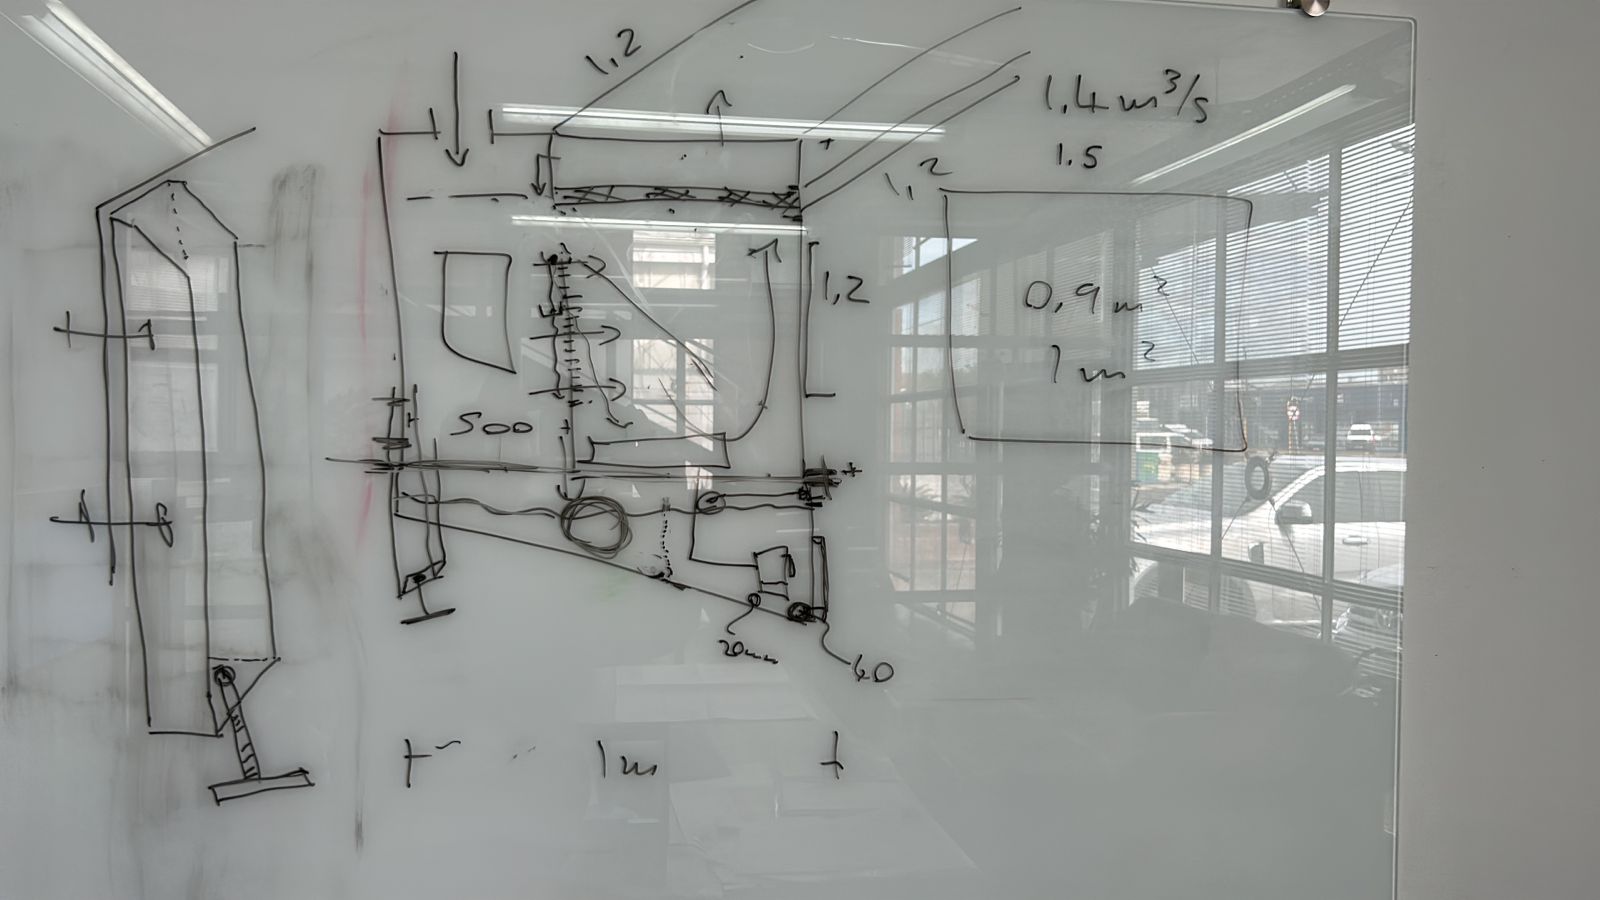 1,2
1,4 m³/s
1.5
1,2
1,2
0,9 m²
1 m²
500
20mm
60
1m